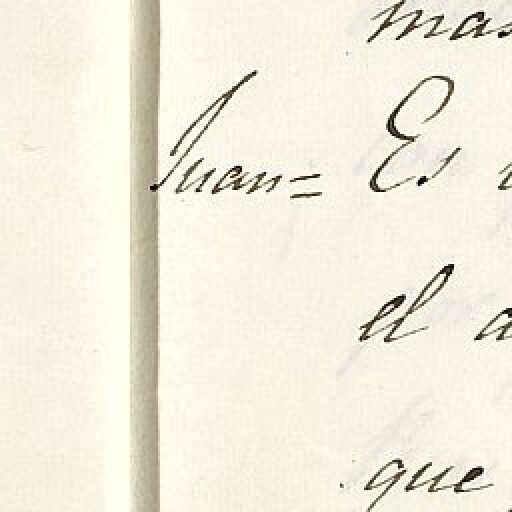 mas
Juan= Es
el a
que